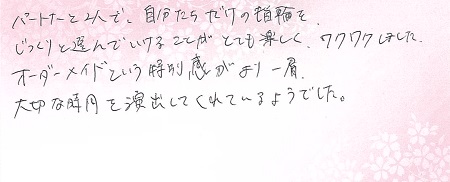 パートナーと2人で、自分たちだけの指輪を
じっくりと選んでいけることがとても楽しく、ワクワクしました。
オーダーメイドという特別感がより一層、
大切な時間を演出してくれているようでした。